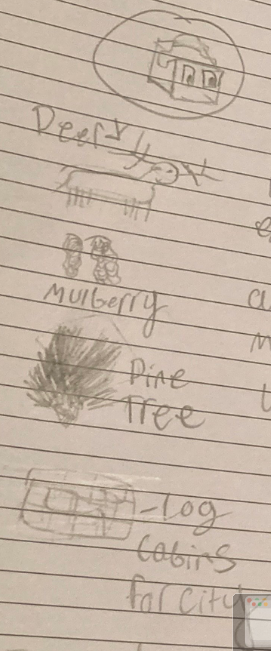 Deer
Mulberry
Pine
Tree
-Log
Cabins
for City